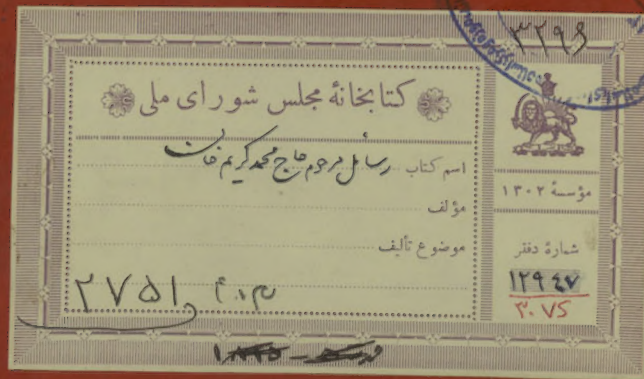 ۳۲۹۶
کتابخانهٔ مجلس شورای ملی
اسم کتاب رسائل مرحوم حاج محمد کریم خان
مؤلف
موضوع تألیف
مؤسسهٔ ۱۳۰۲
شمارهٔ دفتر
۱۲۹۴۷
۳۰۷۵
۲۷۵۱